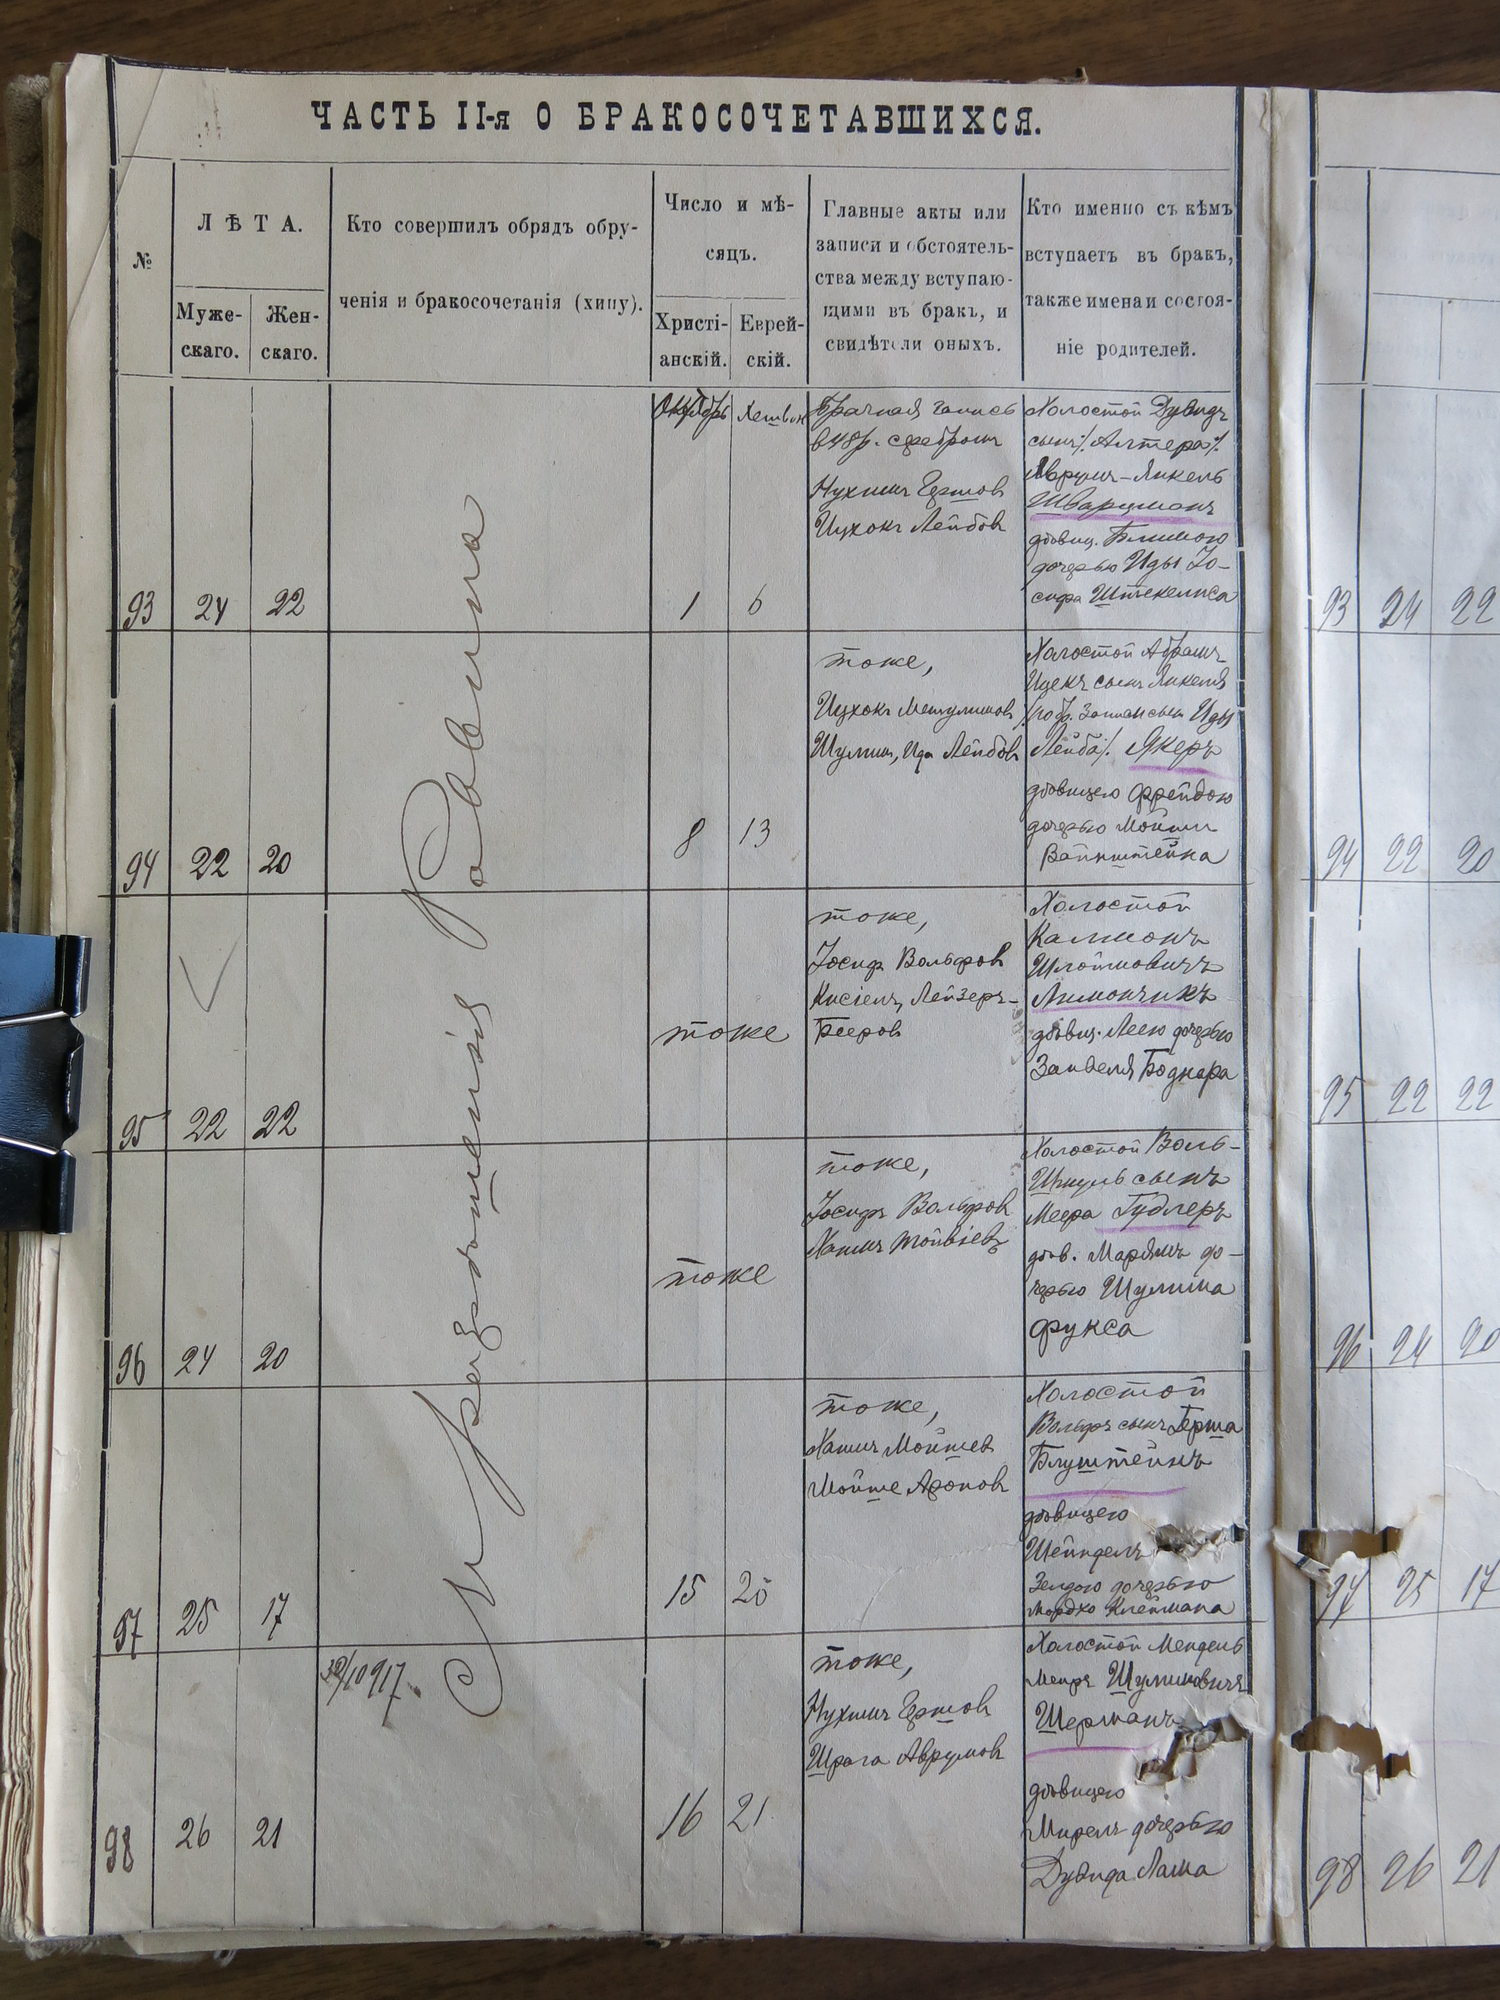 ЧАСТЬ II-я О БРАКОСОЧЕТАВШИХСЯ.
№
ЛѢТА.
Муже-
скаго.
Жен-
скаго.
Кто совершилъ обрядъ обру-
ченія и бракосочетанія (хипу).
Число и мѣ-
сяцъ.
Христі-
анскій.
Еврей-
скій.
Главные акты или
записи и обстоятель-
ства между вступаю-
щими въ бракъ, и
свидѣтели оныхъ.
Кто именно съ кѣмъ
вступаетъ въ бракъ,
также имена и состоя-
ніе родителей.
Съ разрѣшенія Раввина
93
24
22
Октябрь
1
Хешвон
6
Брачная запись
в 48 р. сребромъ
Нухимъ Гершов
Ицхокъ Лейбов
Холостой Дувидъ
сынъ ٪Алтера٪
Аврумъ-Янкель
Шварцманъ
дѣвиц. Блимою
дочерью Иды Іо-
сифа Штекелиса
94
22
20
8
13
тоже,
Ицхокъ Мешулимов
Шулим, Ида Лейбовъ
Холостой Абрамъ
Ицекъ сынъ Янкеля
Лейба٪. Якеръ
дѣвицею Фрейдою
дочерью Мойши
Вайнштейна
95
22
22
тоже
тоже,
Іосиф Вольфов
Кисіель, Лейзеръ-
Бееров
Холостой
Калмонъ
Шлоймовичъ
Лимончикъ
дѣвиц. Леею дочерью
Занвеля Боднара
96
24
20
тоже
тоже,
Іосифъ Вольфов
Хаимъ Тойвіев
Холостой Воль-
Шмуль сынъ
Меера Гудлеръ
дѣв. Марьямъ до-
черью Шулима
Фукса
97
25
17
15
20
тоже,
Хаимъ Мойшев
Мойше Аронов
Холостой
Вольфъ сынъ Герша
Блуштейнъ
дѣвицею
Шейндель
Зелдою дочерью
Мордко Клеймана
98
26
21
30/10 917.
16
21
тоже,
Нухимъ Гершов
Шрага Аврумов
Холостой Мендель
Меиръ Шулимовичъ
Шерманъ
дѣвицею
Мирель дочерью
Дувида Лама
93 24 22
94 22 20
95 22 22
96 24 20
97 25 17
98 26 21